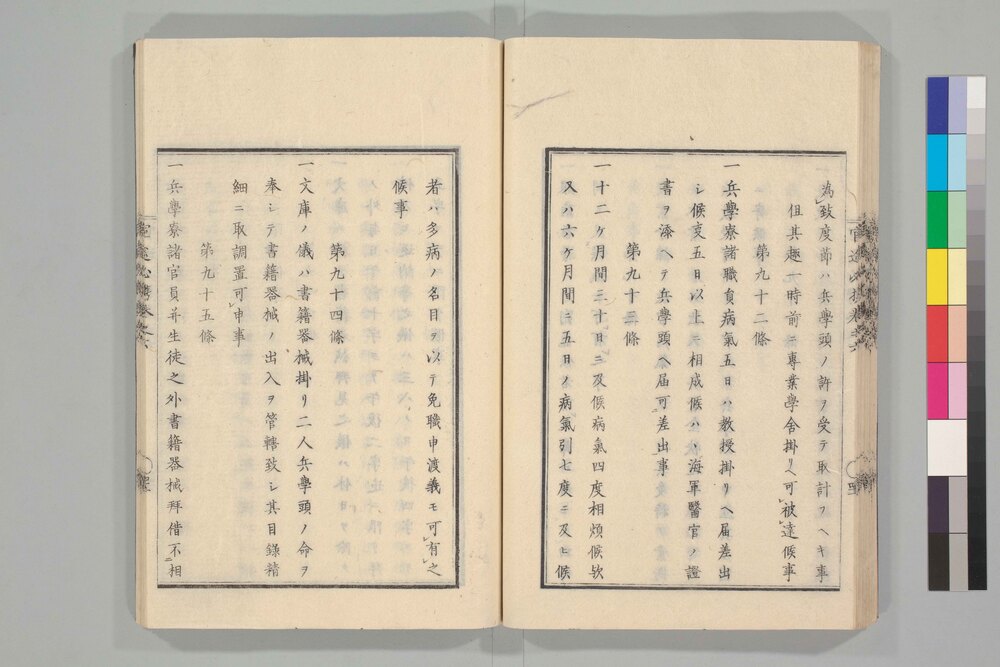 為致度節ハ兵學頭ノ許ヲ受テ取計フヘキ事
但其趣一時前ニ專業學舍掛リヘ可被達候事
第九十二條
一兵學寮諸職員病氣五日ハ教授掛リヘ届差出
シ候亥五日以上ニ相成候ハヽ海軍醫官ノ證
書ヲ添ヘテ兵學頭ヘ届可差出事
第九十三條
一十二ケ月間三十日ニ及候病氣四度相煩候欤
又ハ六ケ月間ニ五日ノ病氣引七度ニ及ヒ候
者ハ多病ノ名目ヲ以テ免職申渡義モ可有之
候事
第九十四條
一文庫ノ儀ハ書籍器械掛リ二人兵學頭ノ命ヲ
奉シテ書籍器械ノ出入ヲ管轄致シ其目錄精
細ニ取調置可申事
第九十五條
一兵學寮諸官員并生徒之外書籍器械拜借不相